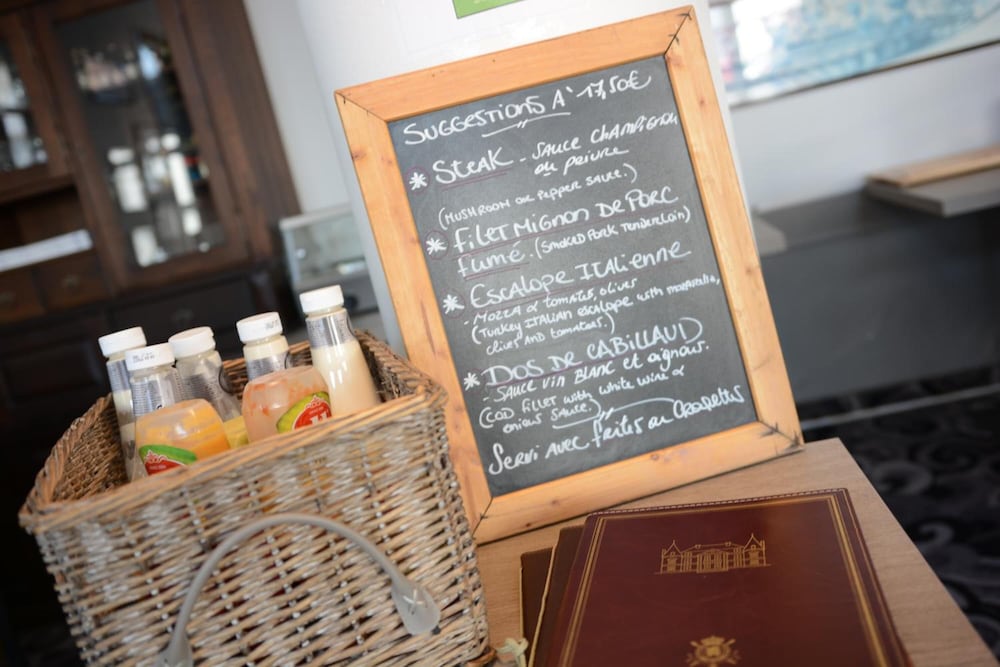 SUGGESTIONS A' 17,50€
* STEAK - SAUCE CHAMPIGNON
ou poivre
(MUSHROOM OR PEPPER SAUCE.)
* FILET MIGNON DE PORC
fumé. (SMOKED PORK TENDERLOIN)
* ESCALOPE ITALIENNE
- MOZZA & tomates, olives
(TURKEY ITALIAN escalope with mozzarella,
olives AND tomatoes.)
* DOS DE CABILLAUD
- SAUCE VIN BLANC et oignons.
(COD fillet with white wine &
onions SAUCE.)
SERVI AVEC frites ou CROQUETTES